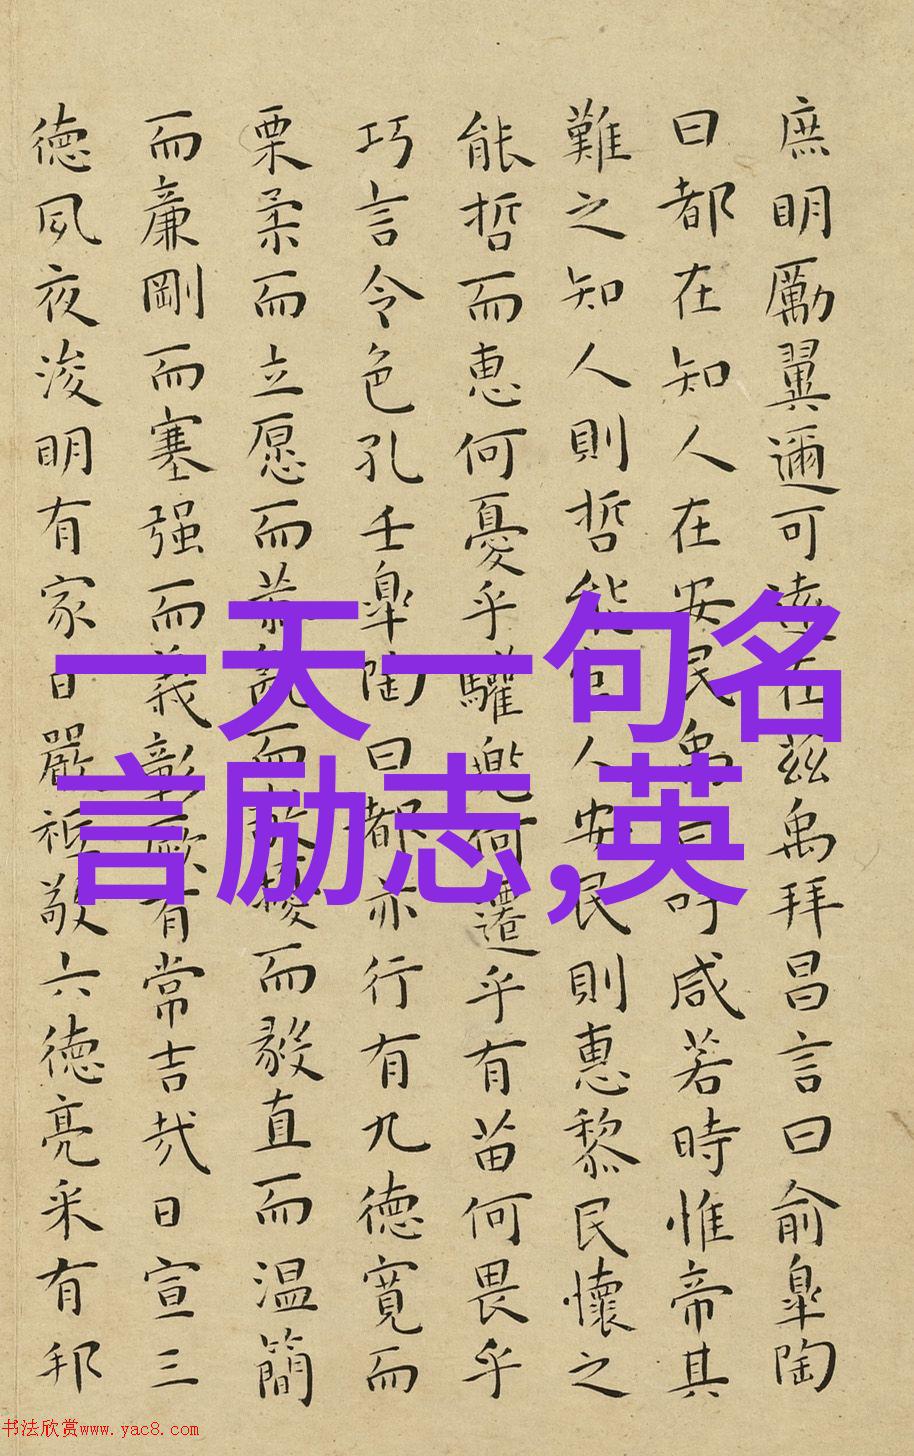 庶明厲翼邇可遠在茲禹拜昌言曰俞皐陶
曰都在知人在安民禹曰吁咸若時惟帝其
難之知人則哲能官人安民則惠黎民懷之
能哲而惠何憂乎驩兜何遷乎有苗何畏乎
巧言令色孔壬皐陶曰都亦行有九德寬而
栗柔而立愿而恭亂而敬擾而毅直而温簡
而廉剛而塞强而義彰厥有常吉哉日宣三
德夙夜浚明有家日嚴祗敬六德亮采有邦
一天一句名
言励志,英
书法欣赏www.yac8.com